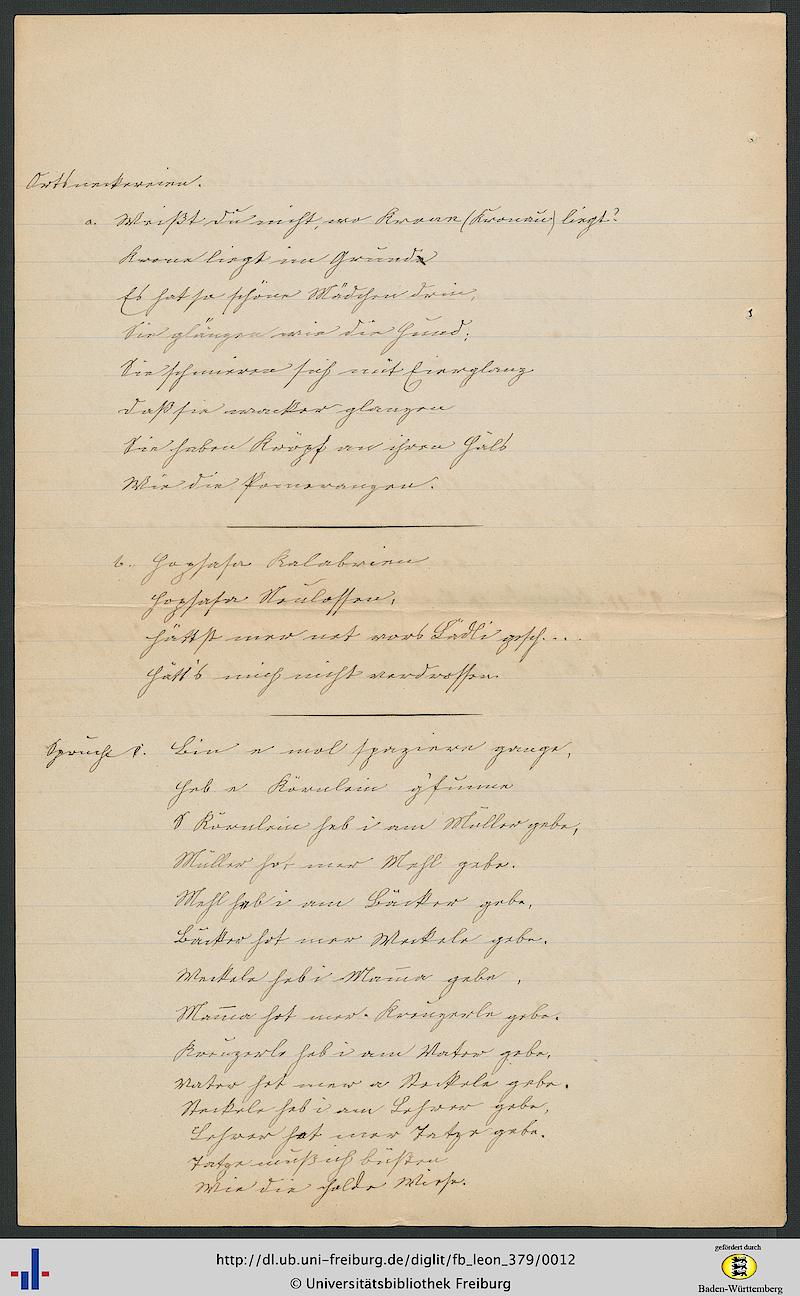 Ortsneckereien.
a. Weißt du nicht, wo Krone (Kronau) liegt?
Krone liegt im Grunde
Es hat so schöne Mädchen drin,
Sie glänzen wie die Hund;
Sie schmieren sich mit Eierglanz
Daß sie wacker glanzen
Sie haben Kröpf an ihren Häls
Wie die Pomeranzen.
b. Hopsasa Kalabrien
Hopsasa Neulossen,
Hättst mer net vors Lädli gesch....
Hätt's mich nicht verdrossen.
Sprüche
Bin e mol spaziere gange,
Heb e Körnlein g'funne
S Körnlein heb i am Müller gebe,
Müller hot mer Mehl gebe.
Mehl heb i am Bäcker gebe,
Bäcker hot mer Weckele gebe.
Weckele heb i Mama gebe,
Mama hot mer Kreuzerle gebe.
Kreuzerle heb i am Vater gebe,
Vater hot mer a Steckele gebe.
Steckele heb i am Lehrer gebe,
Lehrer hat mer Tatze gebe.
Tatze muß ich büßen
Wie die
http://dl.ub.uni-freiburg.de/diglit/fb_leon_379/0012
© Universitätsbibliothek Freiburg
gefördert durch
Baden-Württemberg